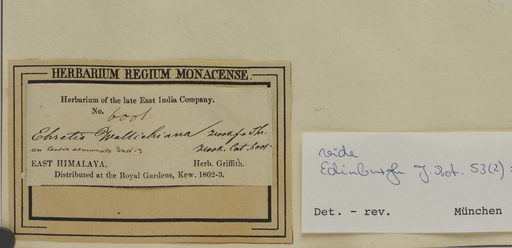 HERBARIUM REGIUM MONACENSE.
Herbarium of the late East India Company.
No. 6001
Ehretia Wallichiana / Hook.f. & Th.
an Cordia acuminata Wall.
EAST HIMALAYA. Herb. Griffith.
Distributed at the Royal Gardens, Kew. 1862-3.
vide
Edinburgh J. Bot. 53(2)
Det. - rev. München